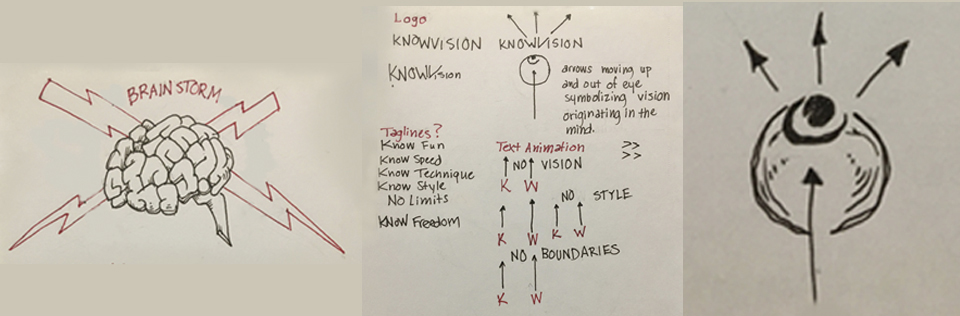 BRAINSTORM
Logo
KNOWVISION
KNOWVISION
KNOWVision
arrows moving up
and out of eye
symbolizing vision
originating in the
mind.
Taglines?
Know Fun
Know Speed
Know Technique
Know Style
No Limits
Know Freedom
Text Animation >>
>>
NO VISION
K W
NO STYLE
K W K W
NO BOUNDARIES
K W